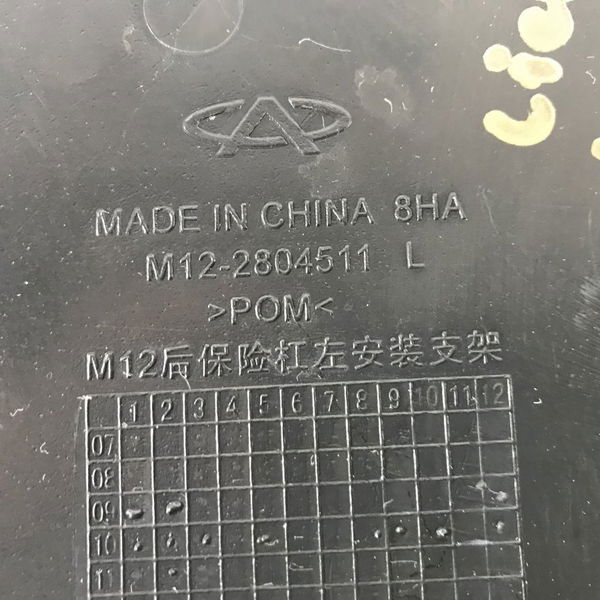 MADE IN CHINA 8HA
M12-2804511 L
>POM<
M12后保险杠左安装支架
1 2 3 4 5 6 7 8 9 10 11 12
07
08
09
10
11